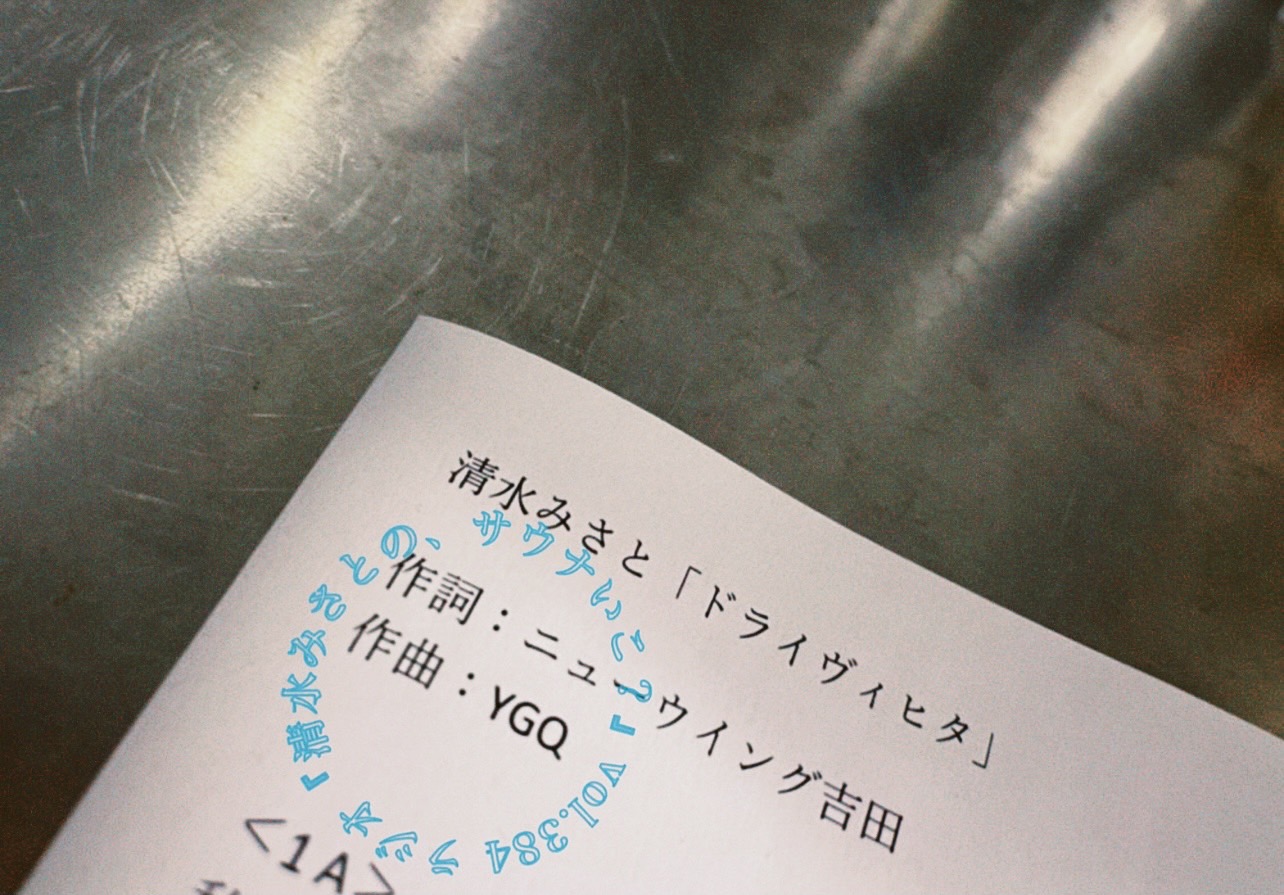 清水みさと「ドライヴィヒタ」
作詞：ニューウイング吉田
作曲：YGQ
＜1A＞
『清水みさとの、サウナいこ？』vol.384 ラジオ